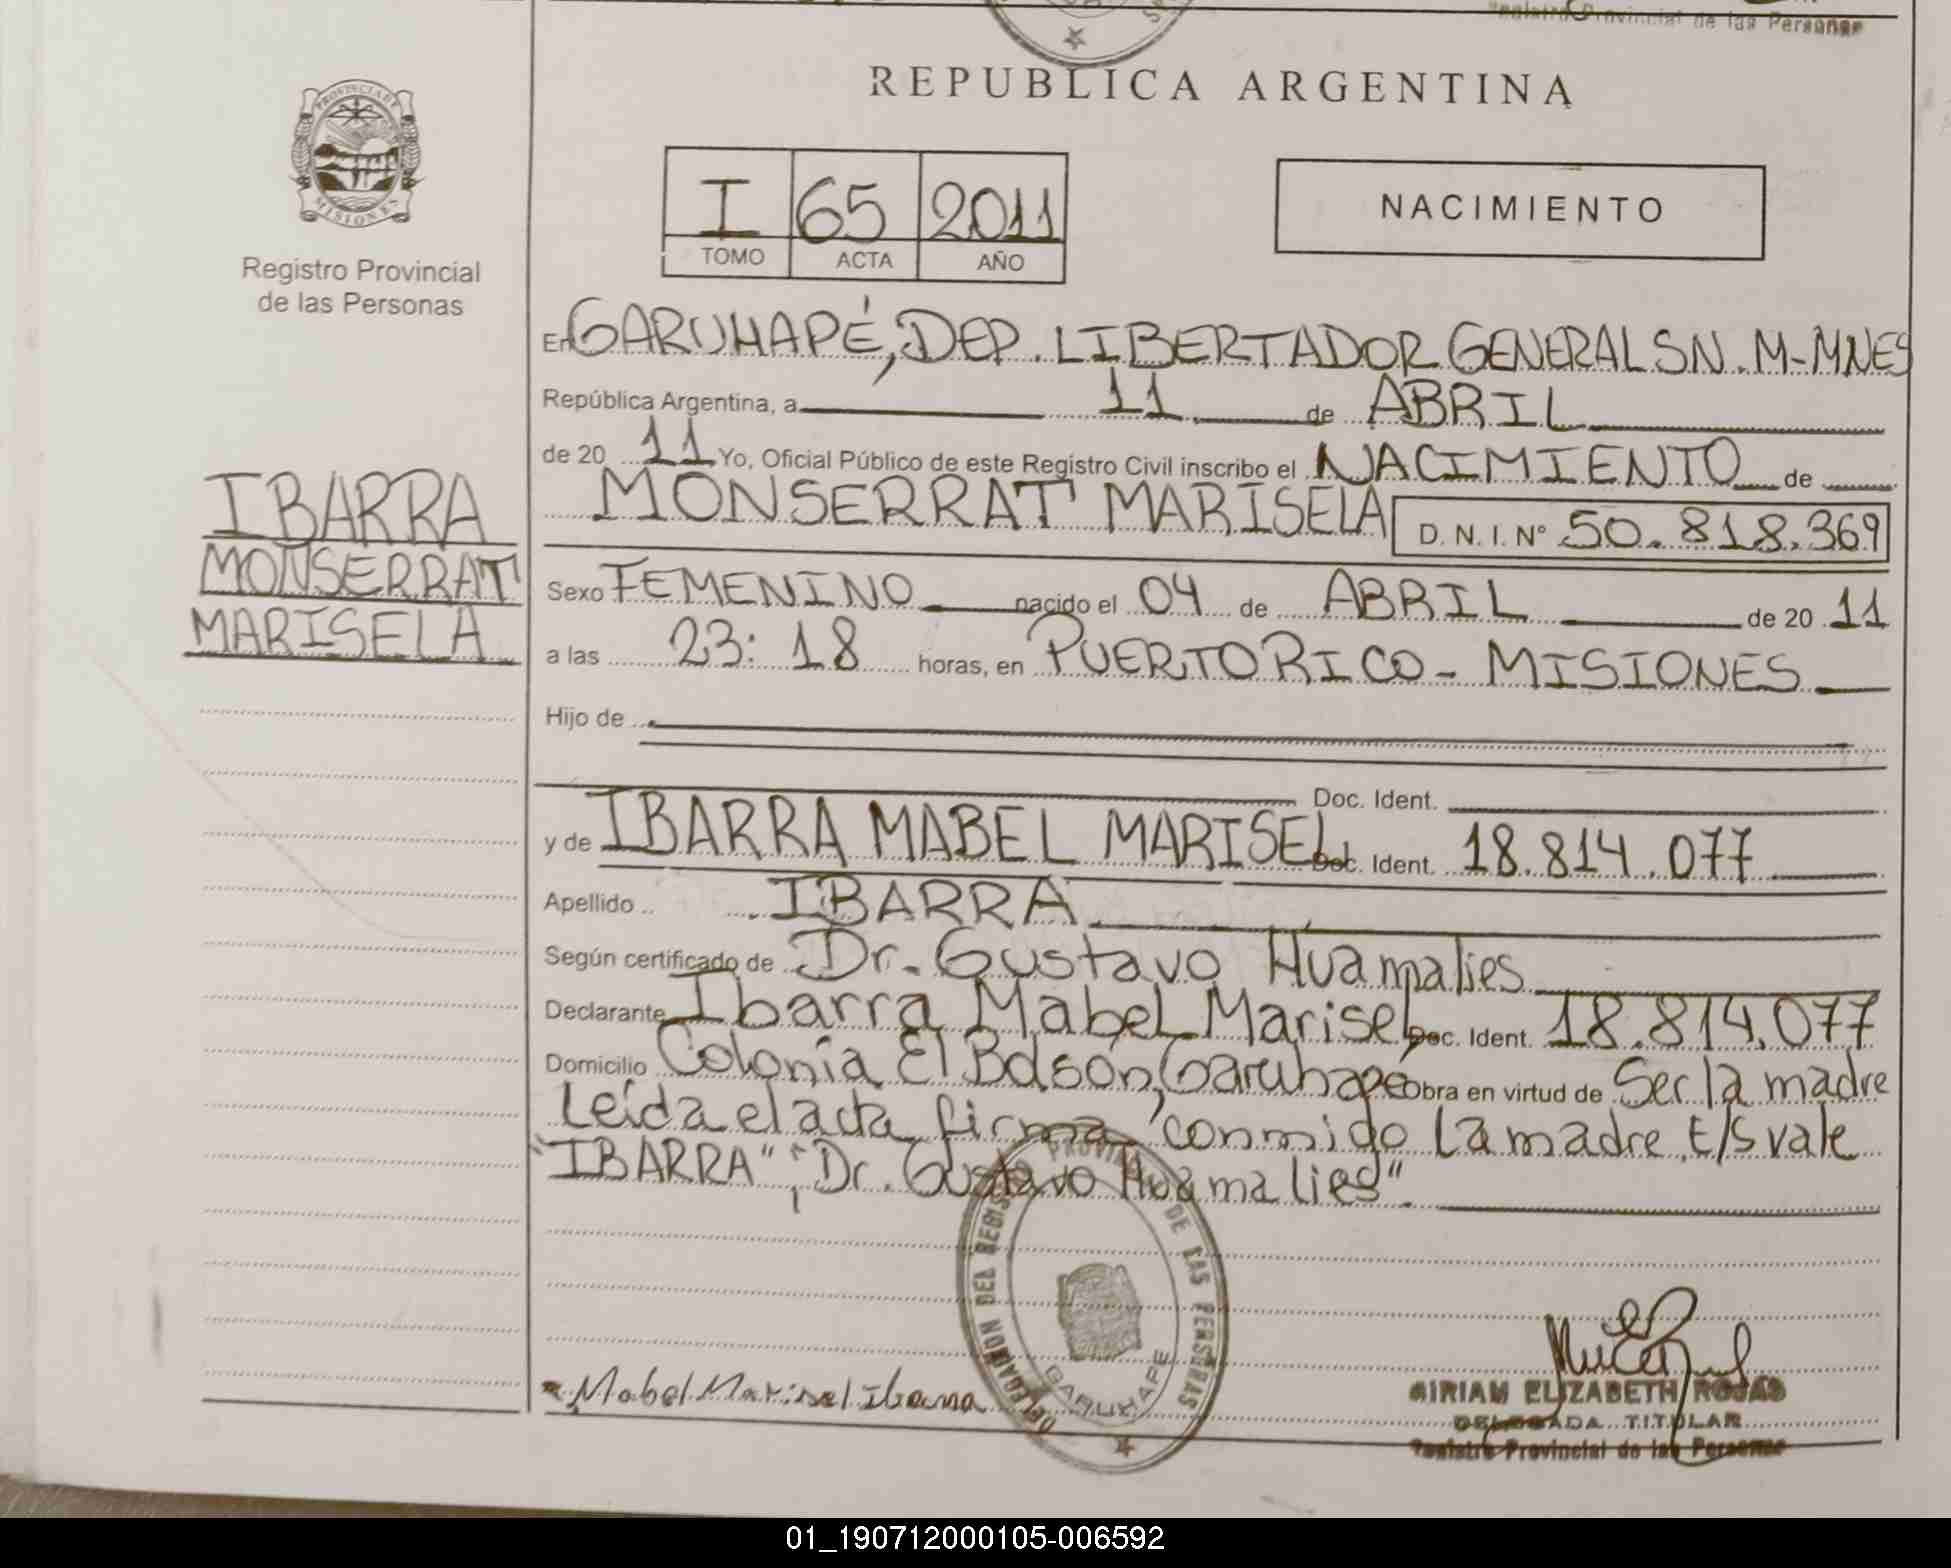 Registro Provincial de las Personas
REPUBLICA ARGENTINA
PROVINCIA DE
MISIONES
Registro Provincial
de las Personas
I 65 2011
TOMO ACTA AÑO
NACIMIENTO
IBARRA
MONSERRAT
MARISELA
En GARUHAPÉ, DEP. LIBERTADOR GENERAL SN. M-MNES
República Argentina, a 11 de ABRIL
de 20 11 Yo, Oficial Público de este Registro Civil inscribo el NACIMIENTO de
MONSERRAT MARISELA D. N. I. Nº 50.818.369
Sexo FEMENINO nacido el 04 de ABRIL de 20 11
a las 23:18 horas, en PUERTO RICO - MISIONES
Hijo de
Doc. Ident.
y de IBARRA MABEL MARISEL Doc. Ident. 18.814.077
Apellido IBARRA
Según certificado de Dr. Gustavo Huamalies
Declarante Ibarra Mabel Marisel Doc. Ident. 18.814.077
Domicilio Colonia El Bolsón, Garuhape Obra en virtud de Ser la madre
Leída el acta firma conmido la madre. t/s vale
"IBARRA", "Dr. Gustavo Huamalies".
DELEGACION DEL REGISTRO PROVINCIAL DE LAS PERSONAS
GARUHAPE
Mabel Marisel Ibarra
MIRIAM ELIZABETH ROJAS
DELEGADA TITULAR
Registro Provincial de las Personas
01_190712000105-006592